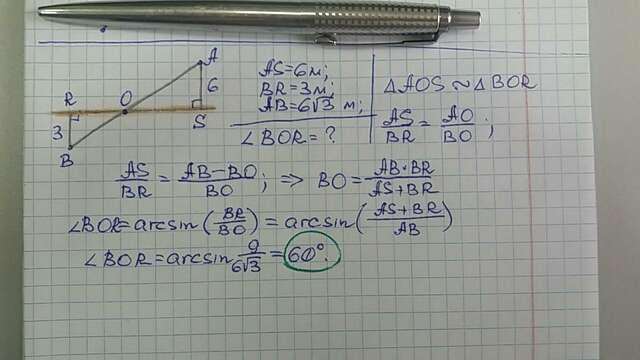 A
R O 6
3 S
B
AS=6м;
BR=3м;
AB=6√3 м;
∠BOR=?
△AOS ~ △BOR
AS/BR = AO/BO;
AS/BR = AB-BO/BO; ⇒ BO = AB·BR/AS+BR
∠BOR=arcsin(BR/BO) = arcsin(AS+BR/AB)
∠BOR=arcsin 9/6√3 = 60°.